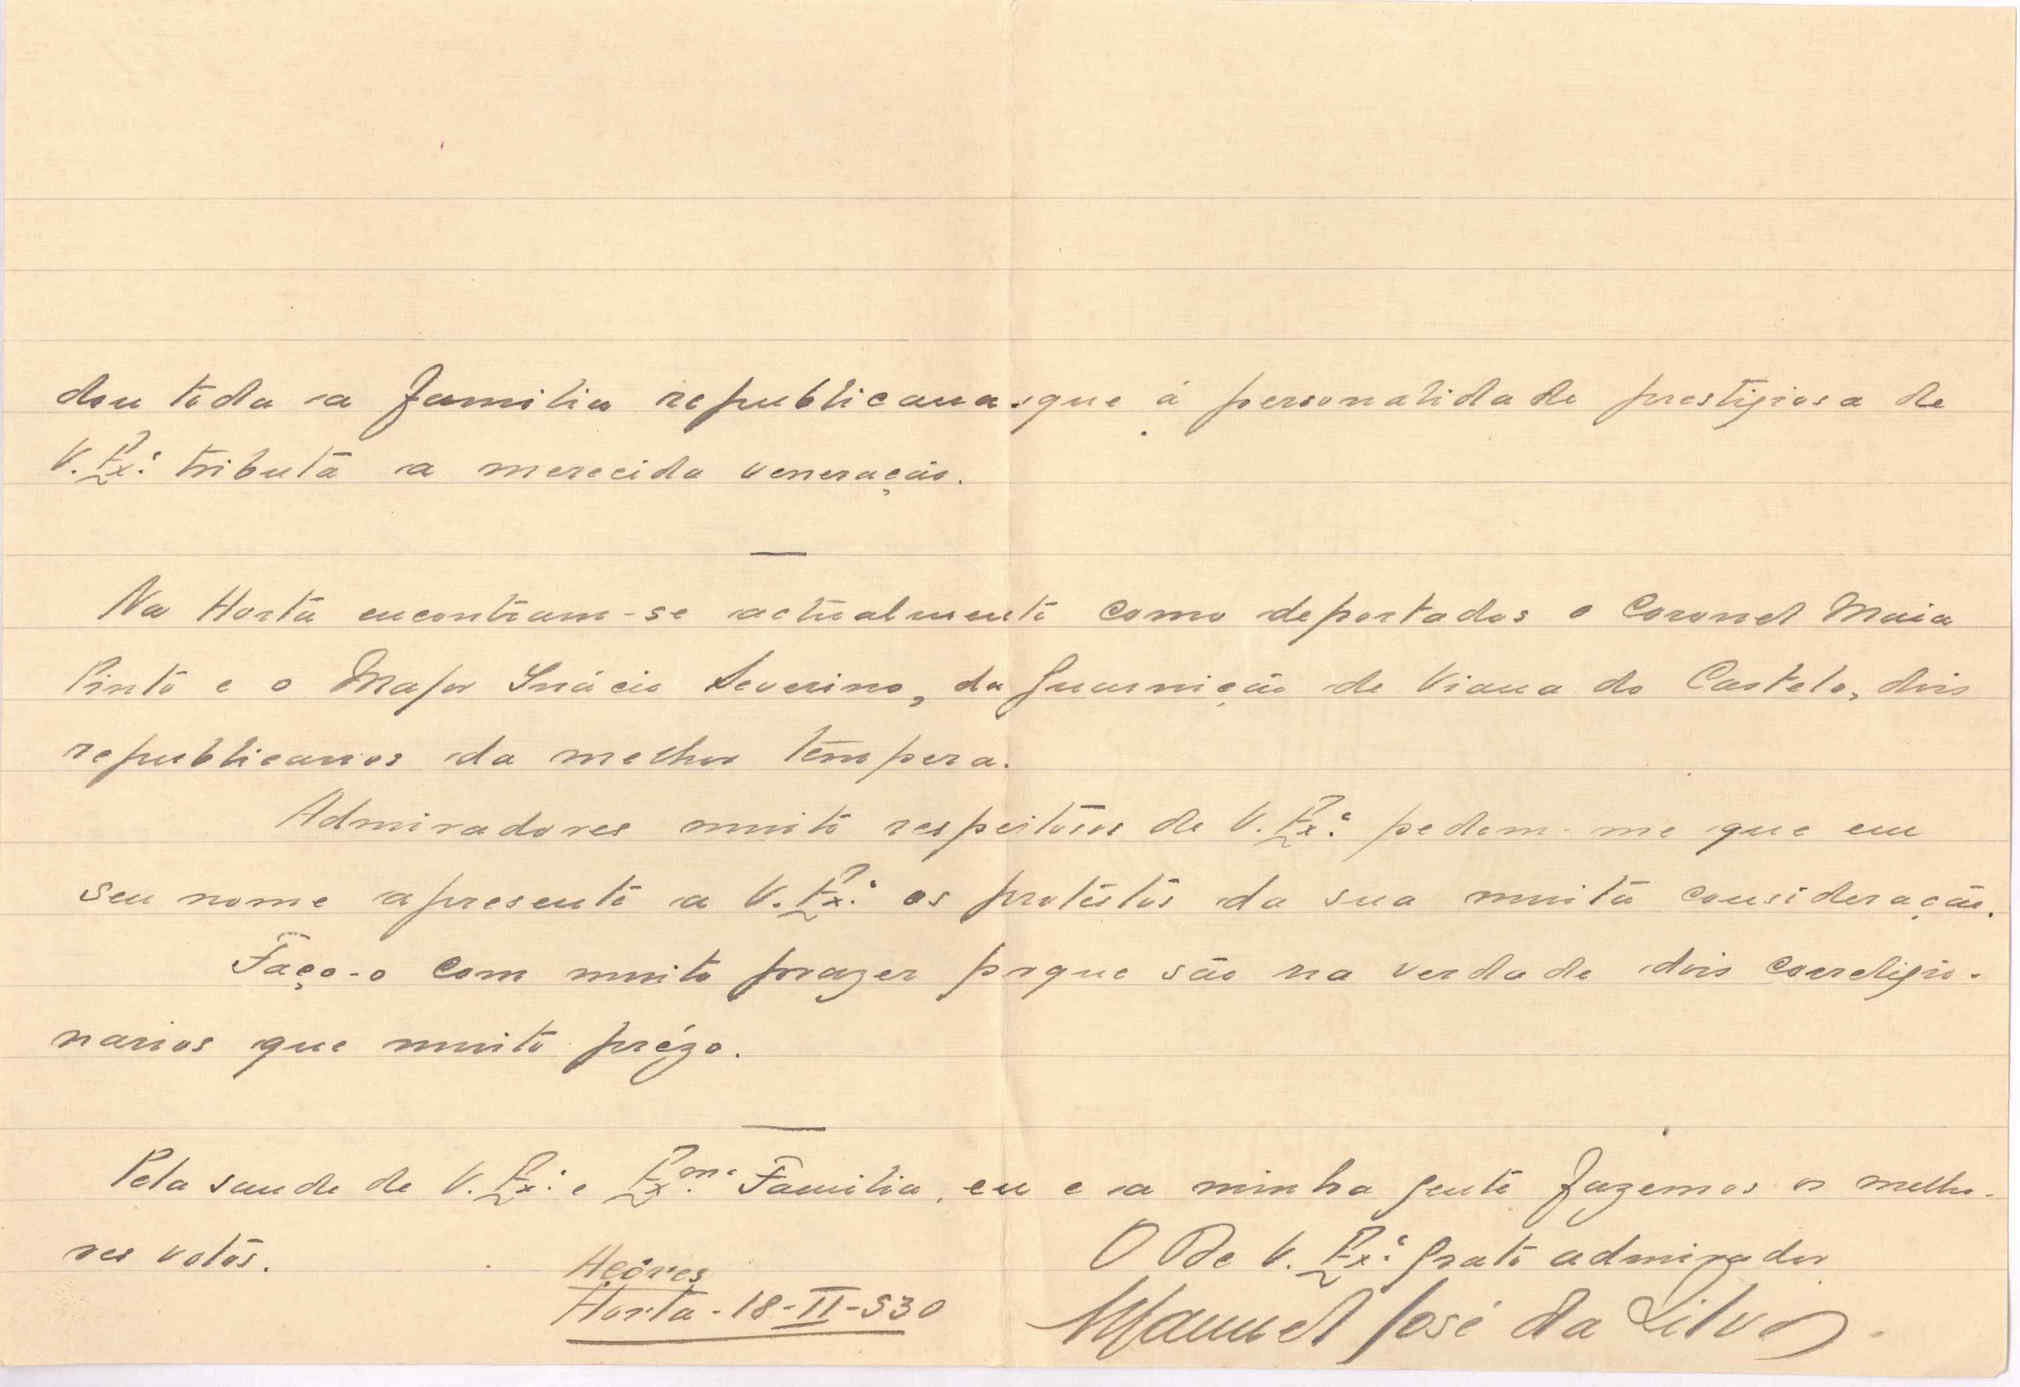 dou toda a familia republicana que á personalidade prestigiosa de
V. Ex.ª tributa a merecida veneração.
Na Horta encontram-se actualmente como deportados o Coronel Maia
Pinto e o Major Inácio Severino, da guarnição de Viana do Castelo, dois
republicanos da melhor tempera.
Admiradores muito respeitosos de V. Ex.ª pedem-me que em
seu nome apresente a V. Ex.ª os protestos da sua muita consideração.
Faço-o com muito prazer porque são na verdade dois correligio-
narios que muito prézo.
Pela saude de V. Ex.ª e Ex.mª Familia, eu e a minha gente fazemos os melho-
res votos.
O De V. Ex.ª grato admirador
Açôres
Horta - 18-II-930
Manuel José da Silva